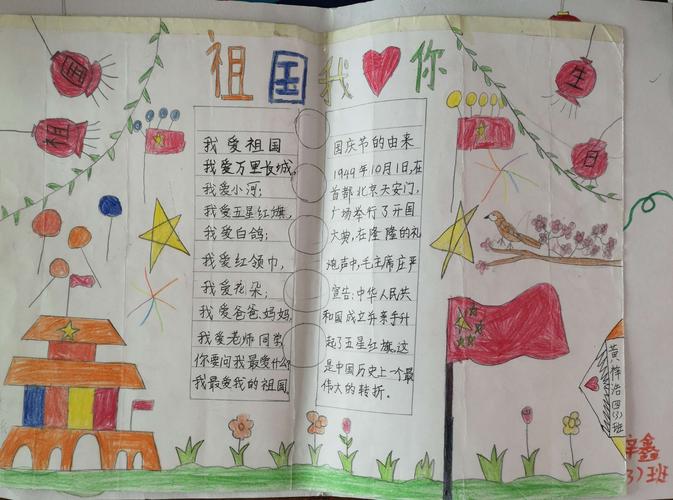 祖国我❤你
国
祖
生
日
我爱祖国
我爱万里长城,
我爱小河;
我爱五星红旗,
我爱白鸽;
我爱红领巾,
我爱花朵;
我爱爸爸妈妈,
我爱老师同学,
你要问我最爱什么
我最爱我的祖国
国庆节的由来
1949年10月1日,在
首都北京天安门,
广场举行了开国
大典,在隆隆的礼
炮声中,毛主席庄严
宣告:中华人民共
和国成立并亲手升
起了五星红旗.这
是中国历史上一个最
伟大的转折.
黄梓浩四(3)班
鑫
3)班